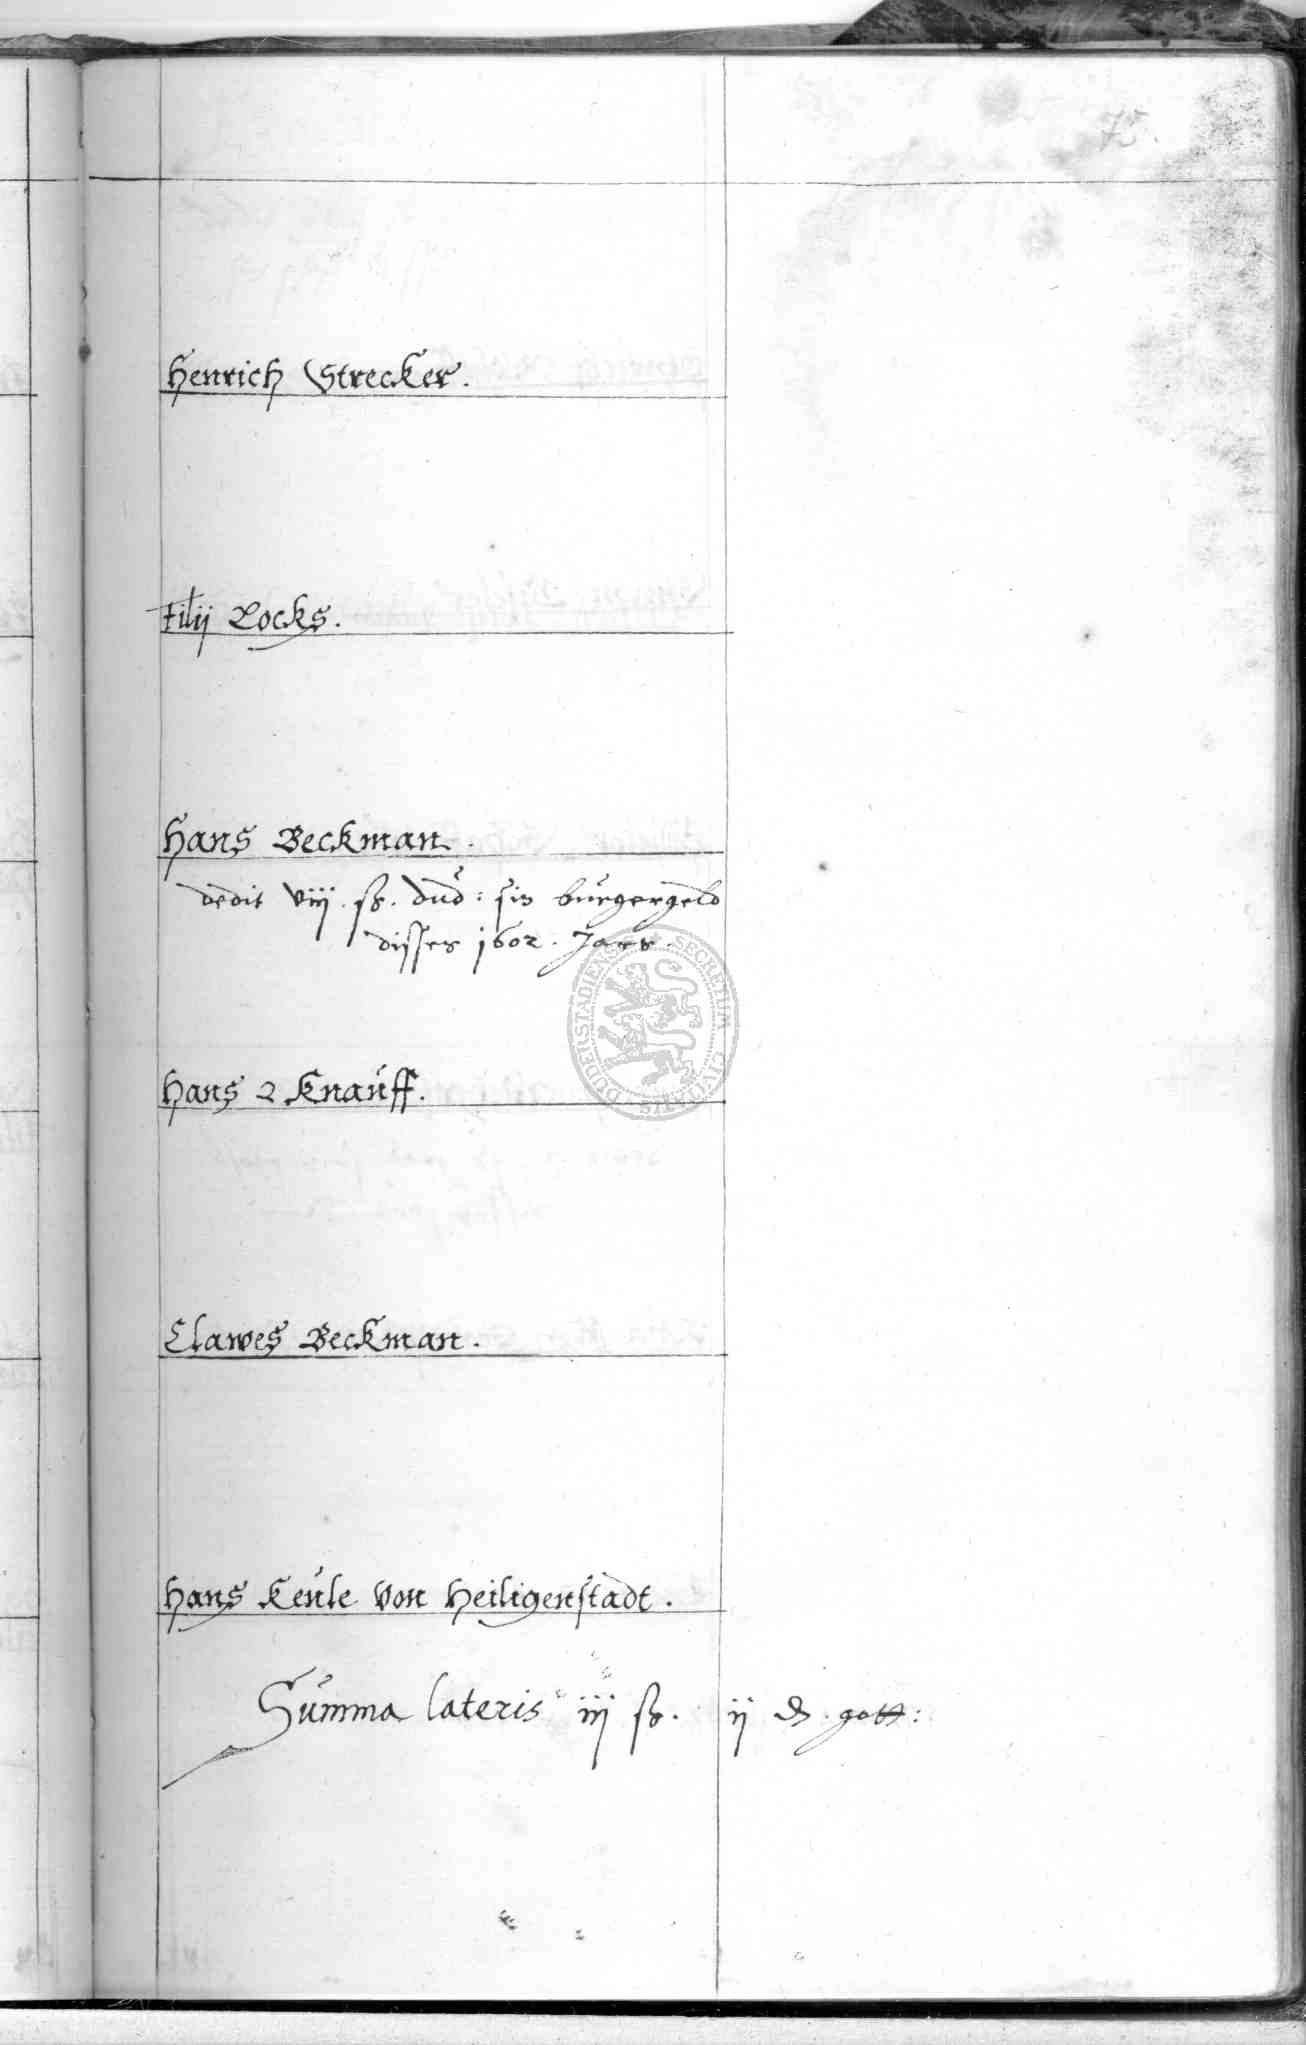 75.
Henrich Strecker.
Filij Locks.
Hans Beckman.
dedit viij. ß. dud: sin burgergeld
disses 1602. Jars.
SECRETUM CIVITATIS DUDERSTADIENSIS
Hans 2 Knauff.
Clawes Beckman.
Hans Keule von Heiligenstadt.
Summa lateris iij ß. ij ₰ gott: